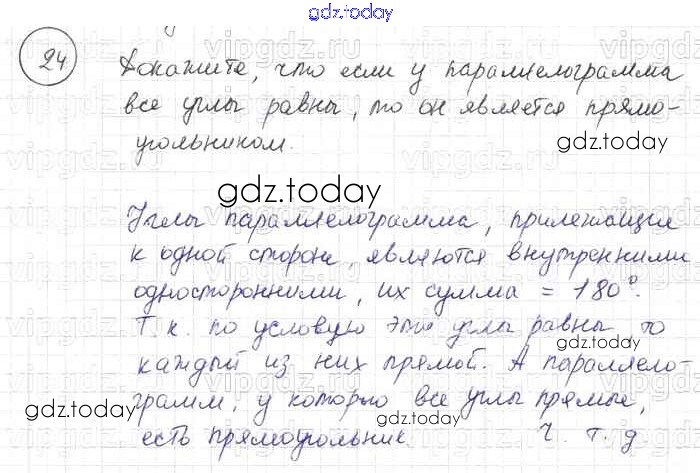 gdz.today
24
Докажите, что если у параллелограмма
все углы равны, то он является прямо-
угольником.
gdz.today
gdz.today
Углы параллелограмма, прилежащие
к одной стороне, являются внутренними
односторонними, их сумма = 180°.
Т.к. по условую эти углы равны то
gdz.today
каждый из них прямой. А параллело-
gdz.today
грамм, у которго все углы прямые,
есть прямоугольник. Ч. т. д.
gdz.today